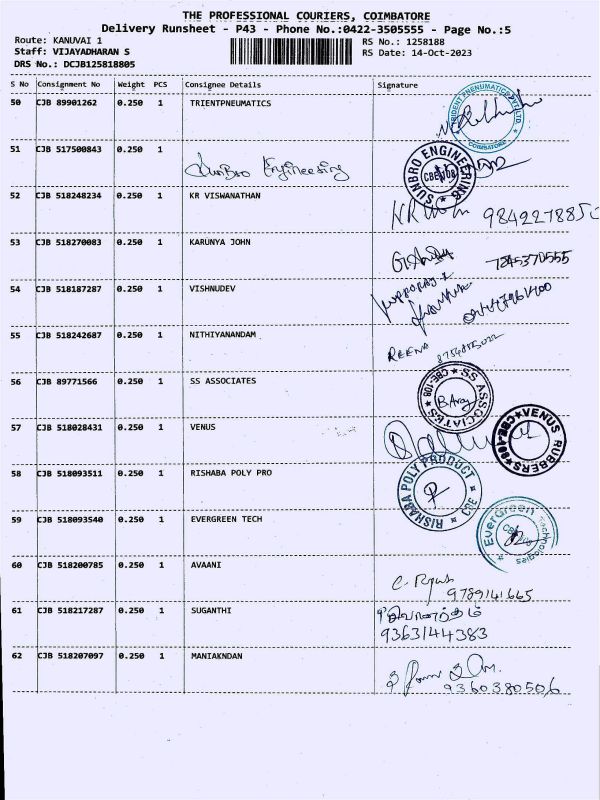 THE PROFESSIONAL COURIERS, COIMBATORE
Delivery Runsheet - P43 - Phone No.:0422-3505555 - Page No.:5
Route: KANUVAI 1
RS No.: 1258188
Staff: VIJAYADHARAN S
RS Date: 14-Oct-2023
DRS No.: DCJB125818805
S No Consignment No Weight PCS Consignee Details Signature
50 CJB 89901262 0.250 1 TRIENTPNEUMATICS
COIMBATORE
51 CJB 517500843 0.250 1
Sunbro Engineering
SUNBRO ENGINEERING CBE-108
52 CJB 518248234 0.250 1 KR VISWANATHAN
53 CJB 518270083 0.250 1 KARUNYA JOHN
7845370555
54 CJB 518187287 0.250 1 VISHNUDEV
55 CJB 518242687 0.250 1 NITHIYANANDAM
REENA
56 CJB 89771566 0.250 1 SS ASSOCIATES
SS ASSOCIATES CBE-108
57 CJB 518028431 0.250 1 VENUS
VENUS RUBBERS CBE-108
58 CJB 518093511 0.250 1 RISHABA POLY PRO
RISHABA POLY PRODUCT CBE
59 CJB 518093540 0.250 1 EVERGREEN TECH
EverGreen Technologies
60 CJB 518200785 0.250 1 AVAANI
9789141665
61 CJB 518217287 0.250 1 SUGANTHI
9363144383
62 CJB 518207097 0.250 1 MANIAKNDAN
9360380506